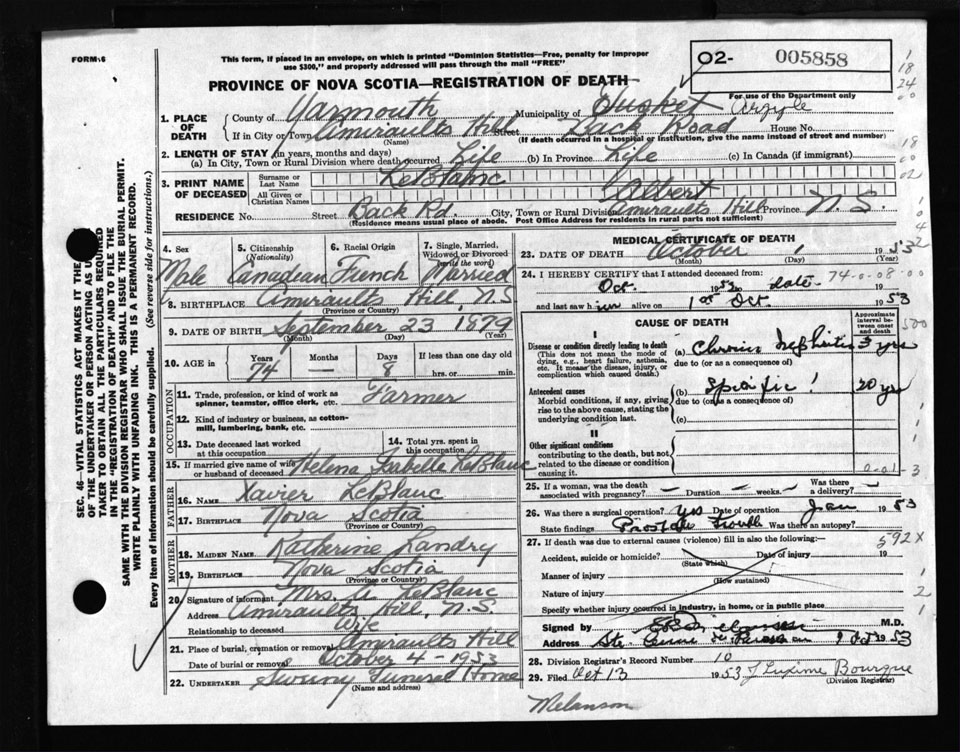 FORM 6
This form, if placed in an envelope, on which is printed "Dominion Statistics—Free, penalty for improper
use $300," and properly addressed will pass through the mail "FREE"
O2- 005858
PROVINCE OF NOVA SCOTIA—REGISTRATION OF DEATH
For use of the Department only
1. PLACE OF DEATH
County of Yarmouth Municipality of Tusket Argyle
If in City or Town Amiraults Hill Street Back Road House No.
(Name) (If death occurred in a hospital or institution, give the name instead of street and number)
2. LENGTH OF STAY (in years, months and days)
(a) In City, Town or Rural Division where death occurred Life (b) In Province Life (c) In Canada (if immigrant)
3. PRINT NAME OF DECEASED
Surname or Last Name LeBlanc
All Given or Christian Names Albert
RESIDENCE No. Street Back Rd. City, Town or Rural Division Amiraults Hill Province N.S.
(Residence means usual place of abode. Post Office Address for residents in rural parts not sufficient)
4. Sex Male
5. Citizenship (Nationality) Canadian
6. Racial Origin French
7. Single, Married, Widowed or Divorced (write the word) Married
8. BIRTHPLACE Amiraults Hill, N.S
(Province or Country)
9. DATE OF BIRTH September 23 1879
(Month) (Day) (Year)
10. AGE in Years 74 Months — Days 8 If less than one day old hrs. or min.
OCCUPATION
11. Trade, profession, or kind of work as spinner, teamster, office clerk, etc. Farmer
12. Kind of industry or business, as cotton-mill, lumbering, bank, etc.
13. Date deceased last worked at this occupation
14. Total yrs. spent in this occupation
15. If married give name of wife or husband of deceased Helena Isabelle LeBlanc
FATHER
16. Name Xavier LeBlanc
17. Birthplace Nova Scotia
(Province or Country)
MOTHER
18. MAIDEN NAME Katherine Landry
19. Birthplace Nova Scotia
(Province or Country)
20. Signature of informant Mrs. A LeBlanc
Address Amiraults Hill, N.S.
Relationship to deceased Wife
21. Place of burial, cremation or removal Amiraults Hill
Date of burial or removal October 4 - 1953
22. UNDERTAKER Sweeny Funeral Home
(Name and address)
MEDICAL CERTIFICATE OF DEATH
23. DATE OF DEATH October 1 1953
(Month) (Day) (Year)
24. I HEREBY CERTIFY that I attended deceased from:
Oct. 1952 to date 74-0-08-00
and last saw him alive on 1st Oct. 1953
CAUSE OF DEATH
Approximate interval between onset and death
I
Disease or condition directly leading to death
(This does not mean the mode of dying, e.g., heart failure, asthenia, etc. It means the disease, injury, or complication which caused death.)
(a) Chronic Nephritis 3 yrs
due to (or as a consequence of)
Antecedent causes
Morbid conditions, if any, giving rise to the above cause, stating the underlying condition last.
(b) Specific! 20 yrs
due to (or as a consequence of)
(c)
II
Other significant conditions contributing to the death, but not related to the disease or condition causing it.
25. If a woman, was the death associated with pregnancy? — Duration — weeks. — Was there a delivery? —
26. Was there a surgical operation? Yes Date of operation Jan 1953
State findings Prostate Trouble Was there an autopsy?
27. If death was due to external causes (violence) fill in also the following:— 592X
Accident, suicide or homicide? Date of injury 19
(State which)
Manner of injury
(How sustained)
Nature of injury
Specify whether injury occurred in industry, in home, or in public place
Signed by M.D.
Address Ste Anne du Ruisseau 9 Oct 1953
28. Division Registrar's Record Number 10
29. Filed Oct 13 1953 J Luxime Bourque
(Division Registrar)
Melanson
SEC. 46—VITAL STATISTICS ACT MAKES IT THE
OF THE UNDERTAKER OR PERSON ACTING AS U
TAKER TO OBTAIN ALL THE PARTICULARS REQUIRED
IN THE "REGISTRATION OF DEATH" AND TO FILE THE
SAME WITH THE DIVISION REGISTRAR WHO SHALL ISSUE THE BURIAL PERMIT.
WRITE PLAINLY WITH UNFADING INK. THIS IS A PERMANENT RECORD.
Every item of information should be carefully supplied. (See reverse side for instructions.)